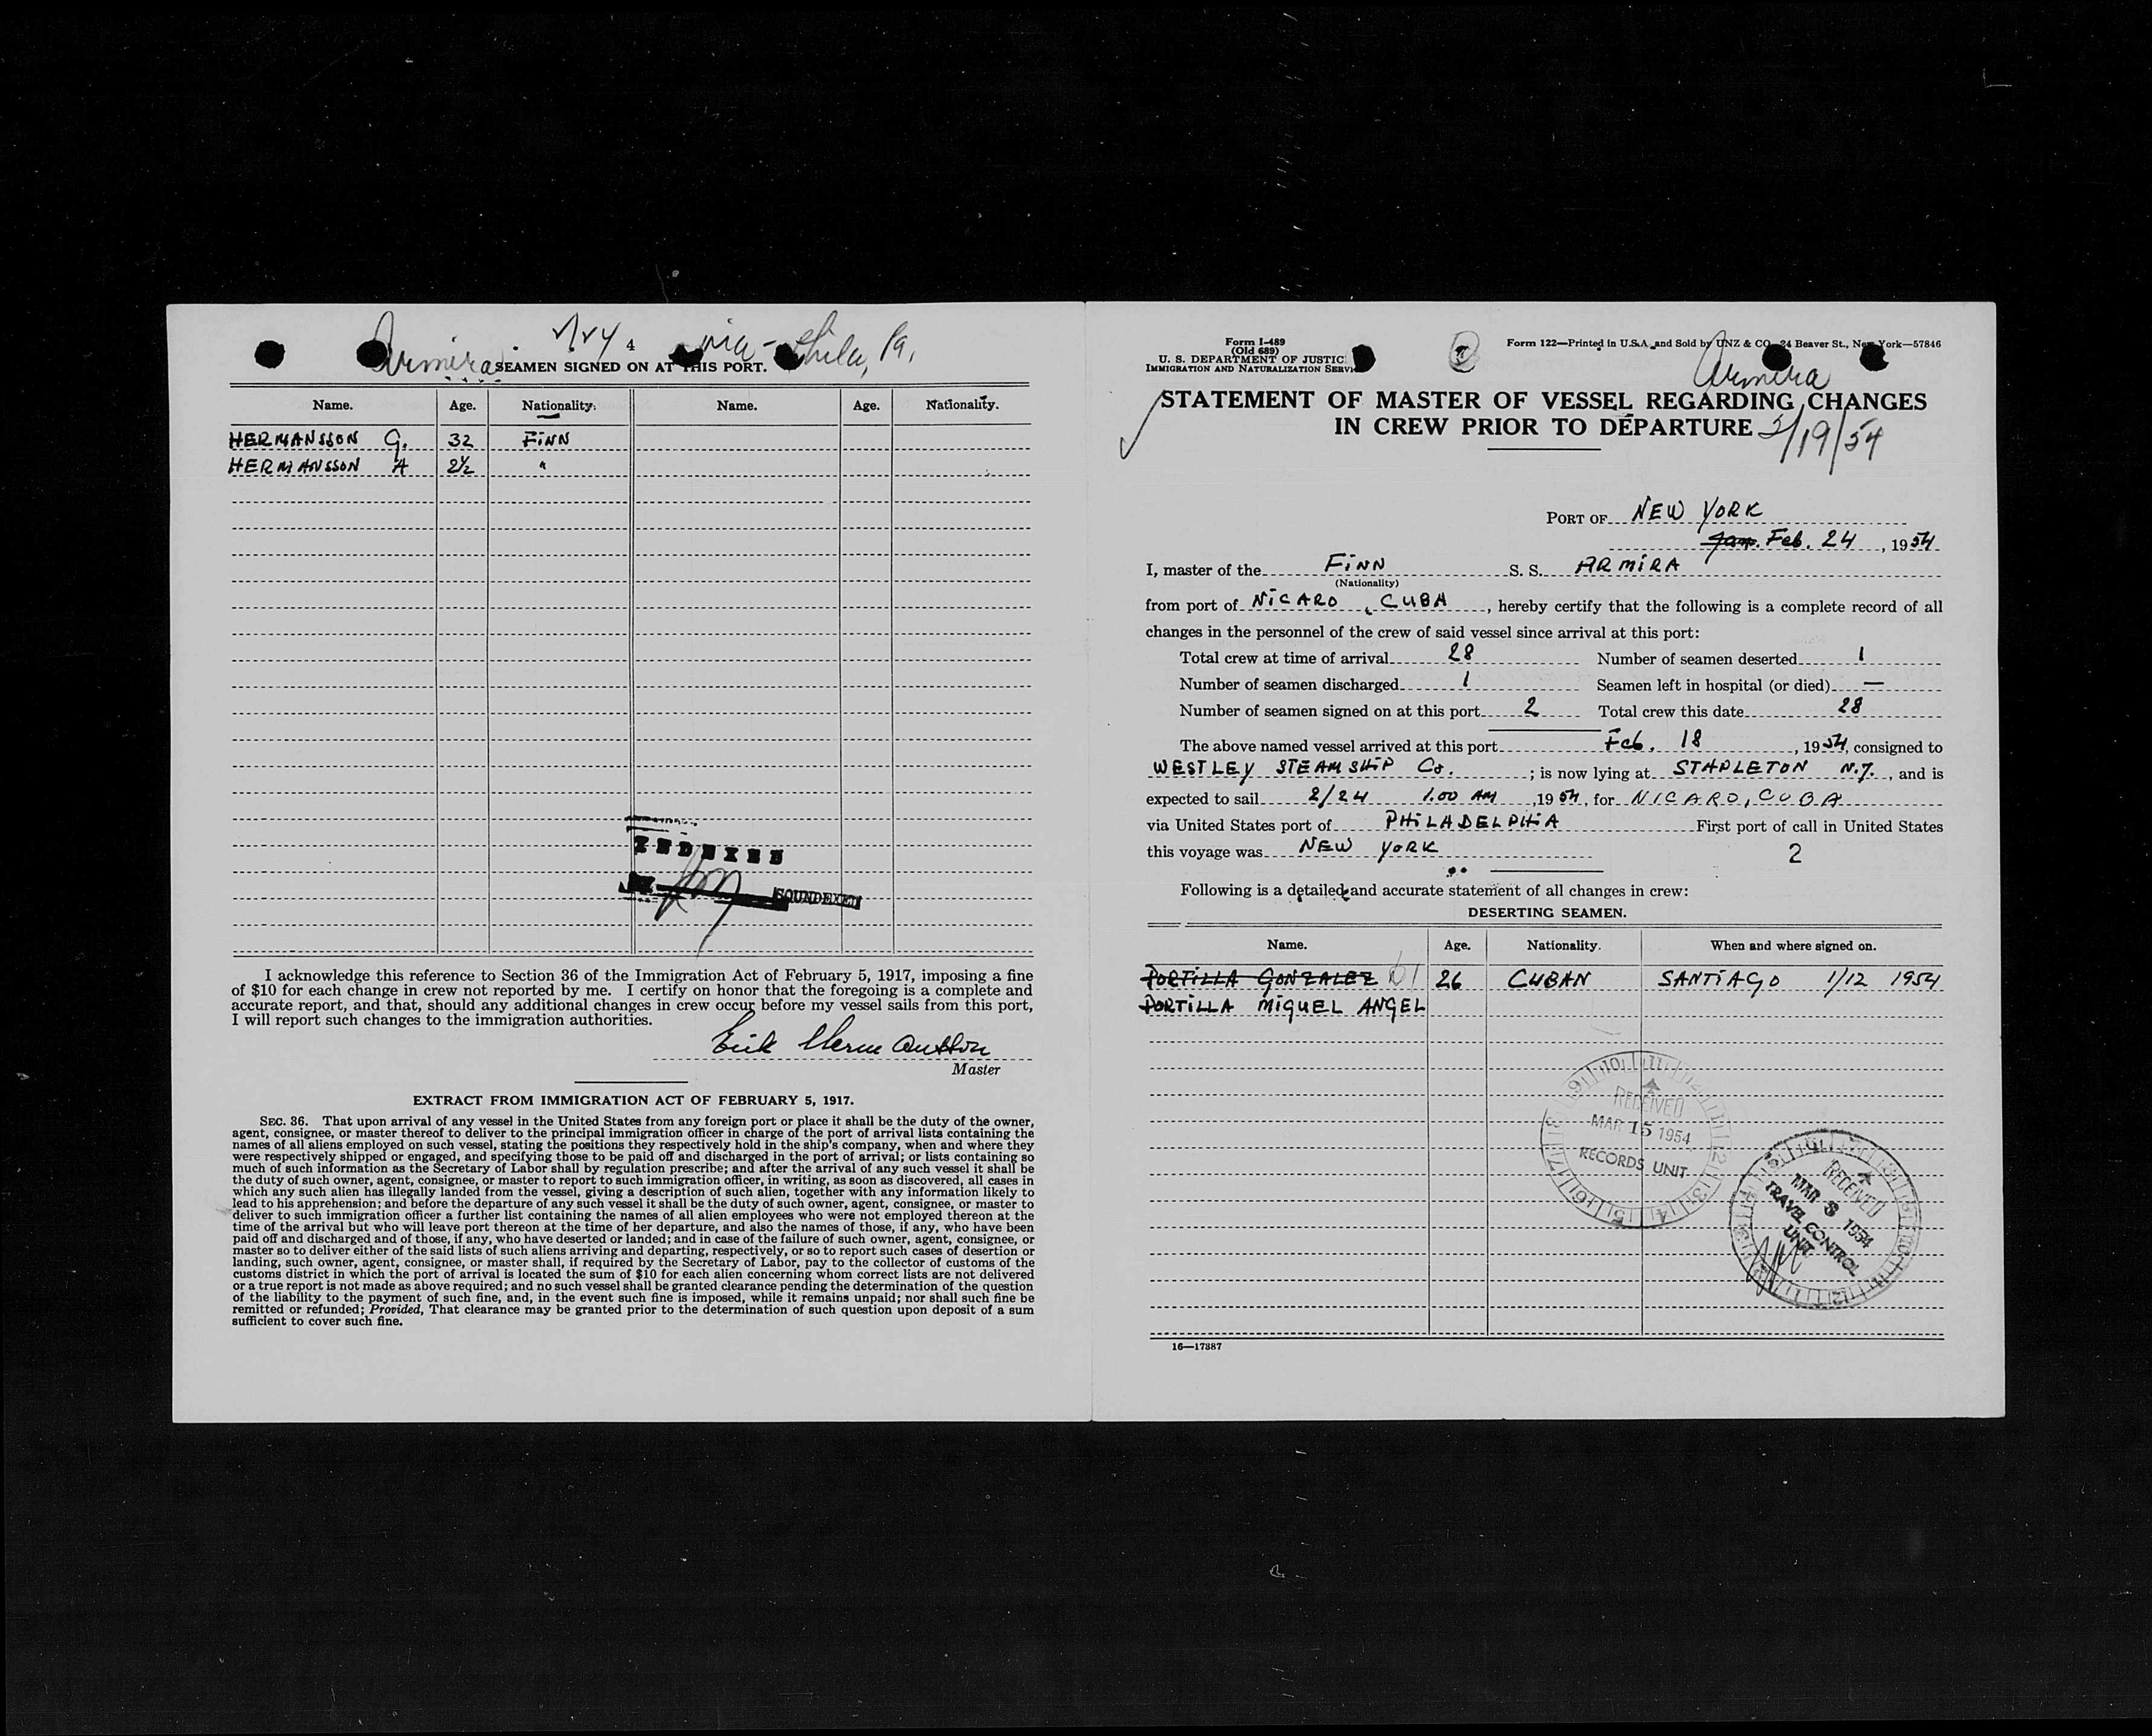 Armira 4 via - Phila, Pa.
SEAMEN SIGNED ON AT THIS PORT.
Name. Age. Nationality. Name. Age. Nationality.
HERMANSSON G. 32 FINN
HERMANSSON A 2½ "
INDEXED
SOUNDEXED
I acknowledge this reference to Section 36 of the Immigration Act of February 5, 1917, imposing a fine
of $10 for each change in crew not reported by me. I certify on honor that the foregoing is a complete and
accurate report, and that, should any additional changes in crew occur before my vessel sails from this port,
I will report such changes to the immigration authorities.
Erik Hermansson
Master
EXTRACT FROM IMMIGRATION ACT OF FEBRUARY 5, 1917.
SEC. 36. That upon arrival of any vessel in the United States from any foreign port or place it shall be the duty of the owner,
agent, consignee, or master thereof to deliver to the principal immigration officer in charge of the port of arrival lists containing the
names of all aliens employed on such vessel, stating the positions they respectively hold in the ship's company, when and where they
were respectively shipped or engaged, and specifying those to be paid off and discharged in the port of arrival; or lists containing so
much of such information as the Secretary of Labor shall by regulation prescribe; and after the arrival of any such vessel it shall be
the duty of such owner, agent, consignee, or master to report to such immigration officer, in writing, as soon as discovered, all cases in
which any such alien has illegally landed from the vessel, giving a description of such alien, together with any information likely to
lead to his apprehension; and before the departure of any such vessel it shall be the duty of such owner, agent, consignee, or master to
deliver to such immigration officer a further list containing the names of all alien employees who were not employed thereon at the
time of the arrival but who will leave port thereon at the time of her departure, and also the names of those, if any, who have been
paid off and discharged and of those, if any, who have deserted or landed; and in case of the failure of such owner, agent, consignee, or
master so to deliver either of the said lists of such aliens arriving and departing, respectively, or so to report such cases of desertion or
landing, such owner, agent, consignee, or master shall, if required by the Secretary of Labor, pay to the collector of customs of the
customs district in which the port of arrival is located the sum of $10 for each alien concerning whom correct lists are not delivered
or a true report is not made as above required; and no such vessel shall be granted clearance pending the determination of the question
of the liability to the payment of such fine, and, in the event such fine is imposed, while it remains unpaid; nor shall such fine be
remitted or refunded; Provided, That clearance may be granted prior to the determination of such question upon deposit of a sum
sufficient to cover such fine.
Form I-489
(Old 689)
U. S. DEPARTMENT OF JUSTIC
IMMIGRATION AND NATURALIZATION SERVI
Form 122—Printed in U.S.A. and Sold by UNZ & CO., 24 Beaver St., New York—57846
Armira
STATEMENT OF MASTER OF VESSEL REGARDING CHANGES
IN CREW PRIOR TO DEPARTURE 2/19/54
PORT OF NEW YORK
Jan. Feb. 24, 1954
I, master of the FINN S. S. ARMIRA
(Nationality)
from port of NICARO, CUBA, hereby certify that the following is a complete record of all
changes in the personnel of the crew of said vessel since arrival at this port:
Total crew at time of arrival 28 Number of seamen deserted 1
Number of seamen discharged 1 Seamen left in hospital (or died) —
Number of seamen signed on at this port 2 Total crew this date 28
The above named vessel arrived at this port Feb. 18, 1954, consigned to
WESTLEY STEAMSHIP Co.; is now lying at STAPLETON N.Y., and is
expected to sail 2/24 1.00 AM, 1954, for NICARO, CUBA
via United States port of PHILADELPHIA First port of call in United States
this voyage was NEW YORK 2
Following is a detailed and accurate statement of all changes in crew:
DESERTING SEAMEN.
Name. Age. Nationality. When and where signed on.
PORTILLA GONZALEZ 26 CUBAN SANTIAGO 1/12 1954
PORTILLA MIGUEL ANGEL
RECEIVED
MAR 15 1954
RECORDS UNIT
RECEIVED
MAR 8 1954
TRAVEL CONTROL
UNIT
16—17387